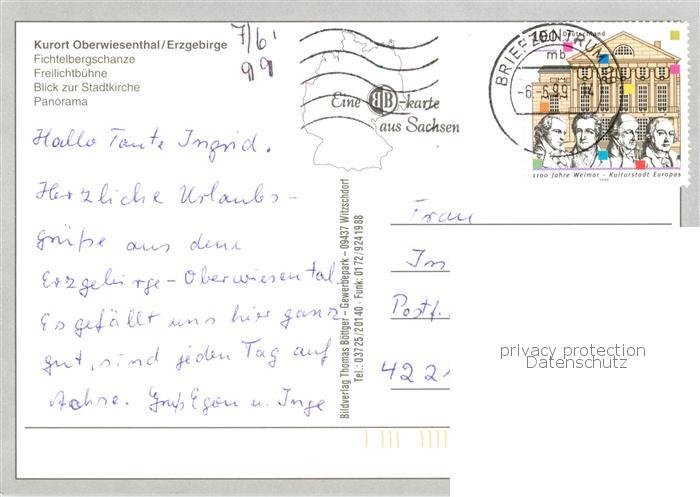 Kurort Oberwiesenthal/Erzgebirge
Fichtelbergschanze
Freilichtbühne
Blick zur Stadtkirche
Panorama
7/6'
99
Eine BB-karte
aus Sachsen
BRIEFZENTRUM
mb
-6.-5.99
100 Deutschland
1100 Jahre Weimar - Kulturstadt Europas
1999
Hallo Tante Ingrid.
Herzliche Urlaubs-
grüße aus dem
Erzgebirge-Oberwiesental.
Es gefällt uns hier ganz
gut, sind jeden Tag auf
Achse. Gruß Egon u. Inge
Bildverlag Thomas Böttger – Gewerbepark – 09437 Witzschdorf
Tel.: 03725/20140 · Funk: 0172/9241988
Frau
In
Postf.
422
privacy protection
Datenschutz